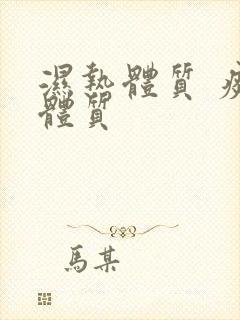 濕熱體質
體質
馬某